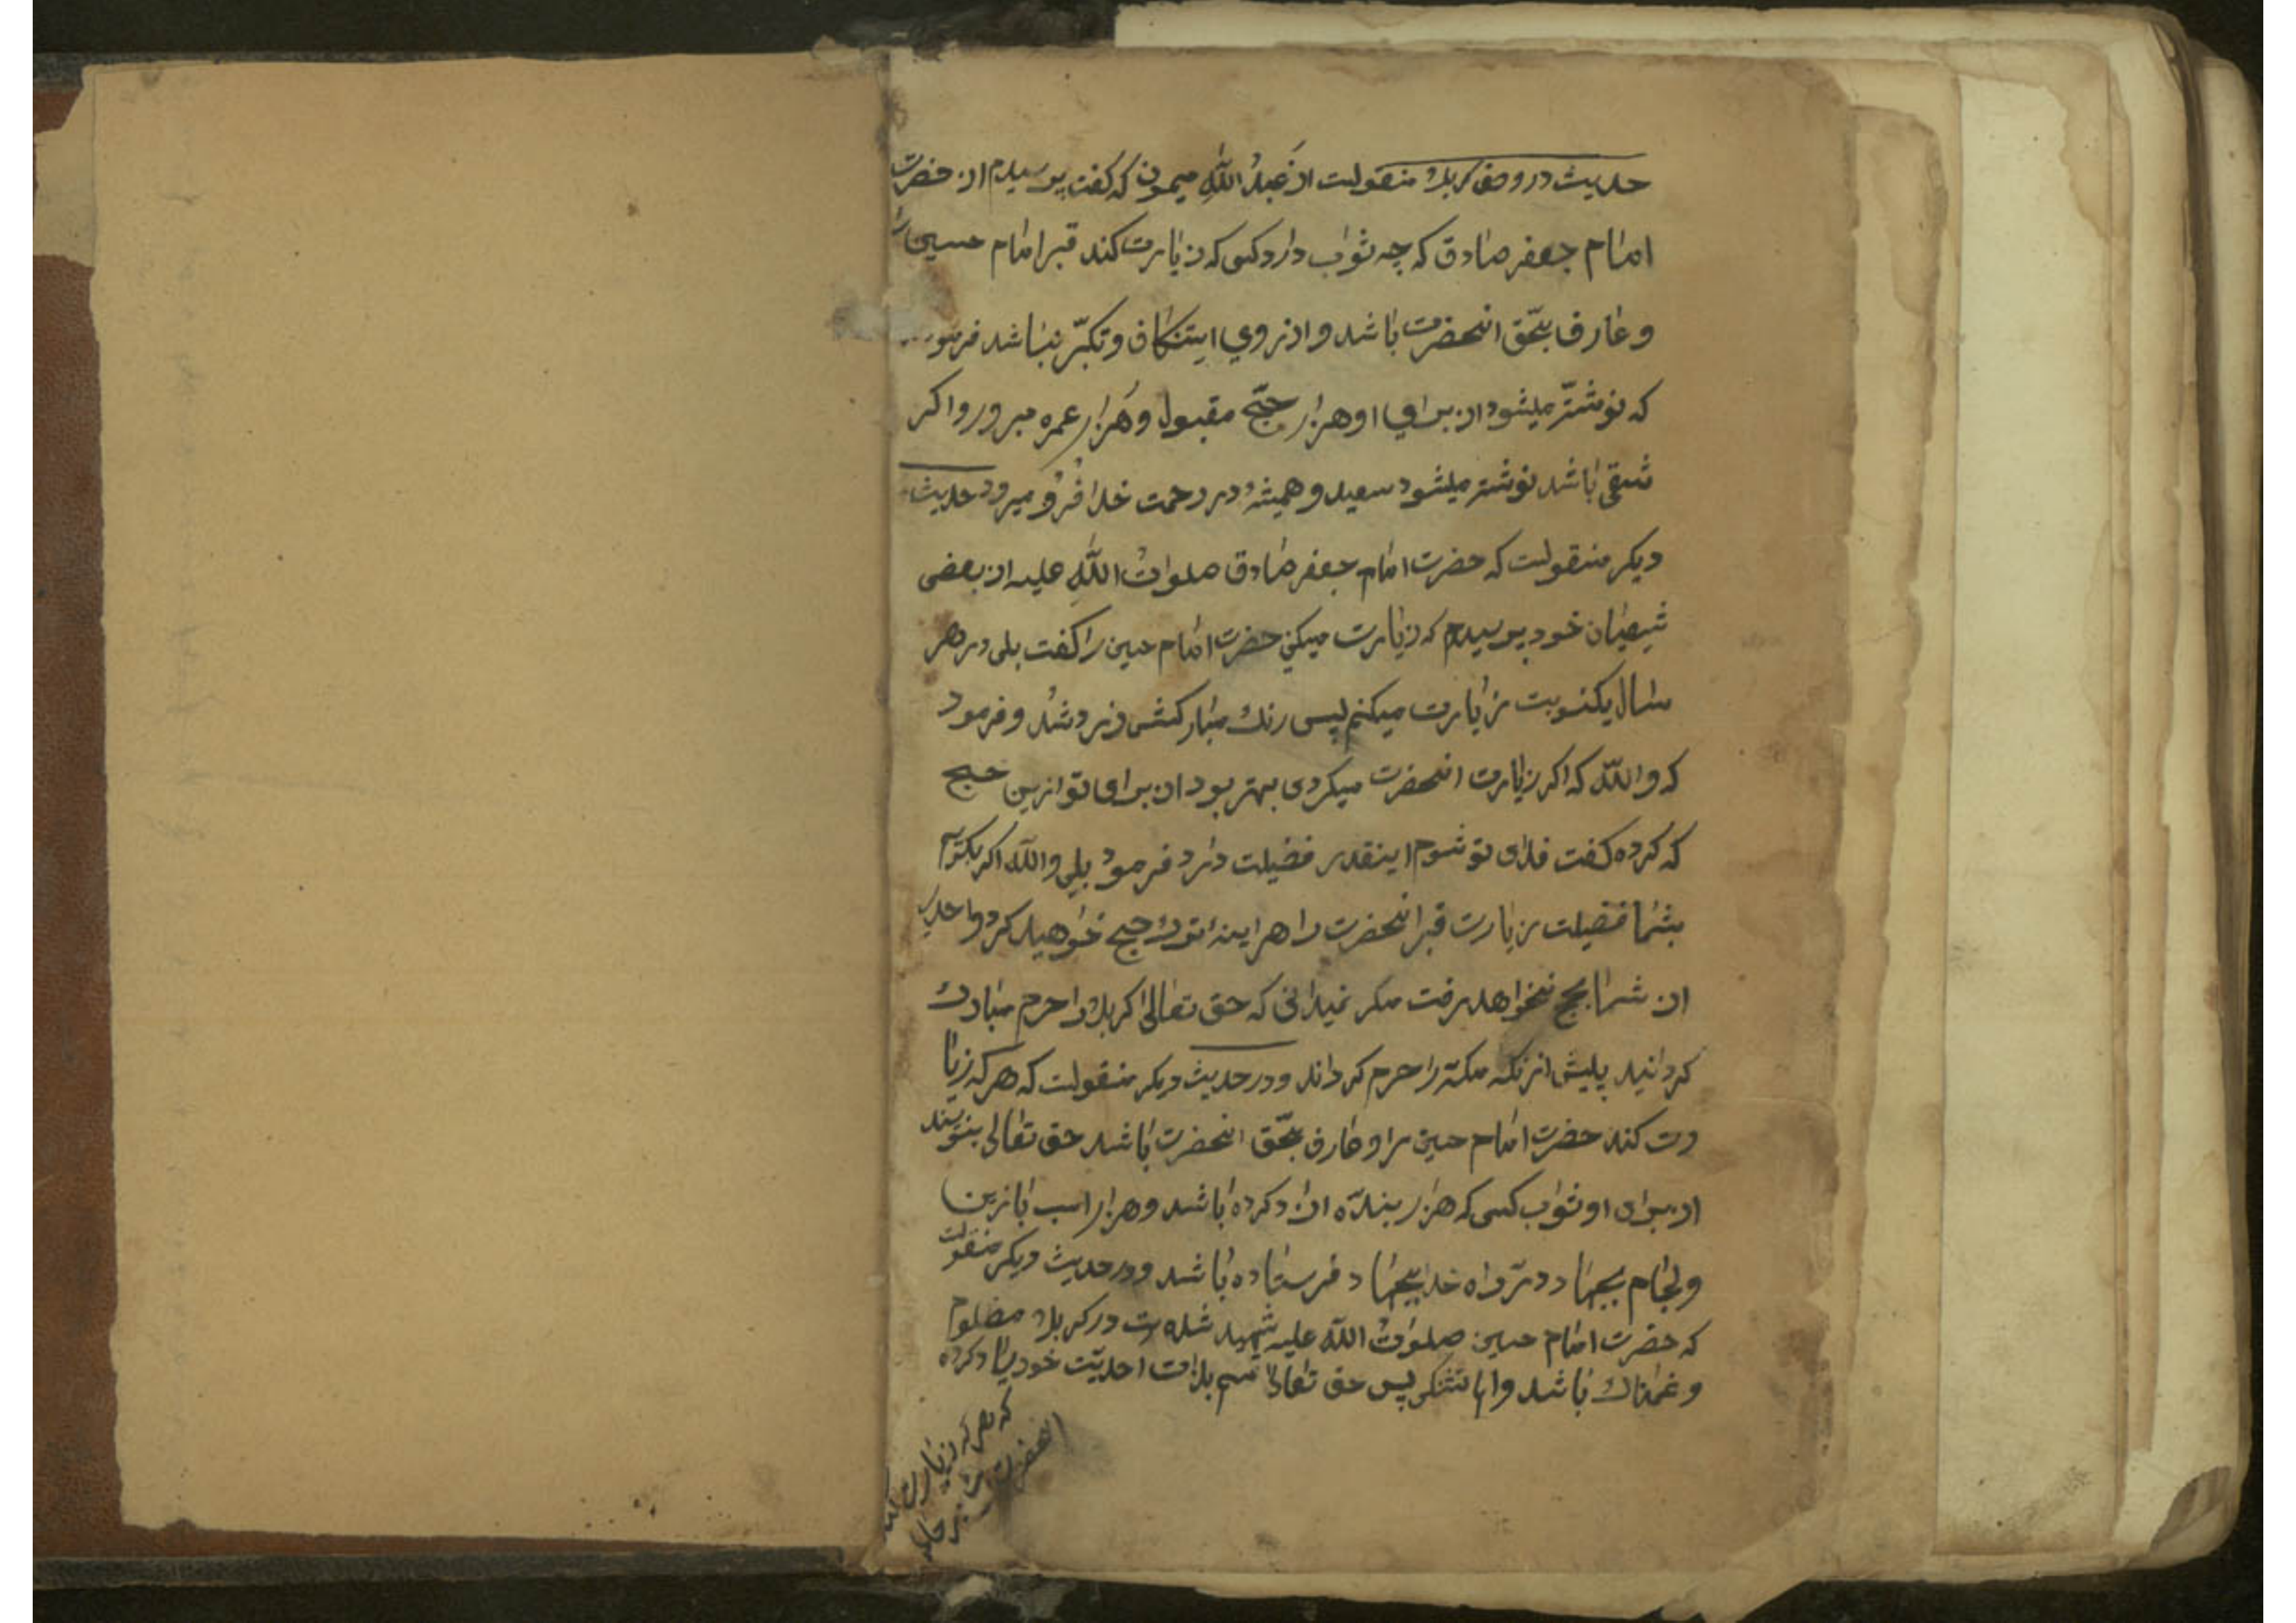 حدیث در وصف کربلا منقولست از عبدُ اللّٰه میمون که کفت پرسیدم از حضرت
امام جعفر صادق که چه ثواب دارد کسی که زیارت کند قبر امام حسین را
و عارف بحّق انحضرت باشد و از روی استنکاف و تکبّر نباشد
که نوشتّر میشود از برای او هزار حجّ مقبول و هزار عمره مبرور و اکر
شقی باشد نوشتر میشود سعید و همیشه در رحمت خدا فرو میرود حدیث
دیکر منقولست که حضرت امام جعفر صادق صلوات اللّٰه علیه از بعضی
شیعیان خود پرسیدم که زیارت میکنی حضرت امام حسین را کفت بلی در هر
سال یکنوبت زیارت میکنم پس رنك مبارکش زرد شد و فرمود
که واللّٰه که اکر زیارت انحضرت میکردی بهتر بود از برای تو ازین حج
که کرده کفت فدای تو شوم اینقدر فضیلت دارد فرمود بلی واللّٰه اکر بکویم
بشما فضیلت زیارت قبر انحضرت را هراینه ترك حج خواهید کرد و احدی
از شما بحج نخواهد رفت مکر نمیدانی که حق تعالی کربلا را حرم مبارك
کردانید پیش ازنکه مکّه را حرم کرداند و در حدیث دیکر منقولست که هر که زیا
رت کند حضرت امام حسین را و عارف بحّق انحضرت باشد حق تعالی بنویسد
از برای او ثواب کسی که هزار بنده ازاد کرده باشد و هزار اسب با زین
و لجام بجهاد در راه خدا بجهاد فرستاده باشد و در حدیث دیکر منقولست
که حضرت امام حسین صلوات اللّٰه علیه شهید شده است در کربلا مضلوم
و غمناك باشد و با تشنکی پس حق تعالی قسم بذات احدیّت خود یاد کرده
که هر که زیارت کند
انحضرت را